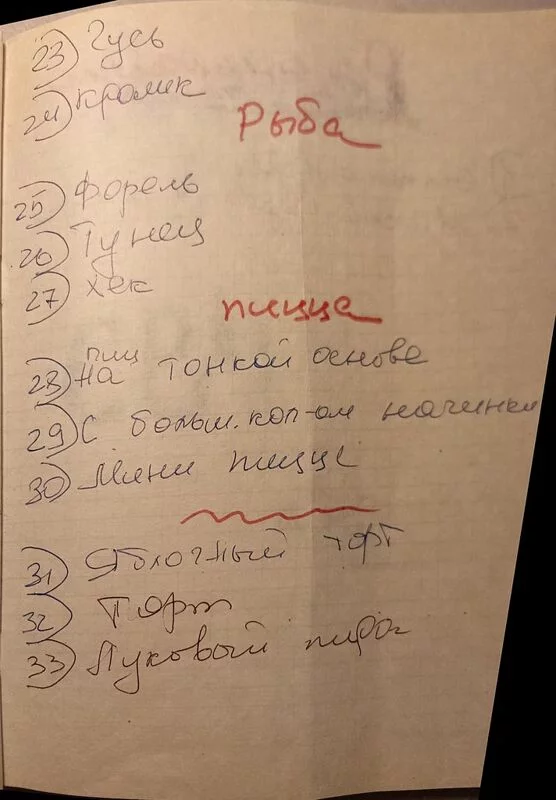 23) Гусь
24) кролик
Рыба
25) Форель
26) Тунец
27) хек
пицца
28) пиц на тонкой основе
29) с больш. кол-ом начинки
30) Мини пицца
31) Яблочный торт
32) Торт
33) Луковый пирог